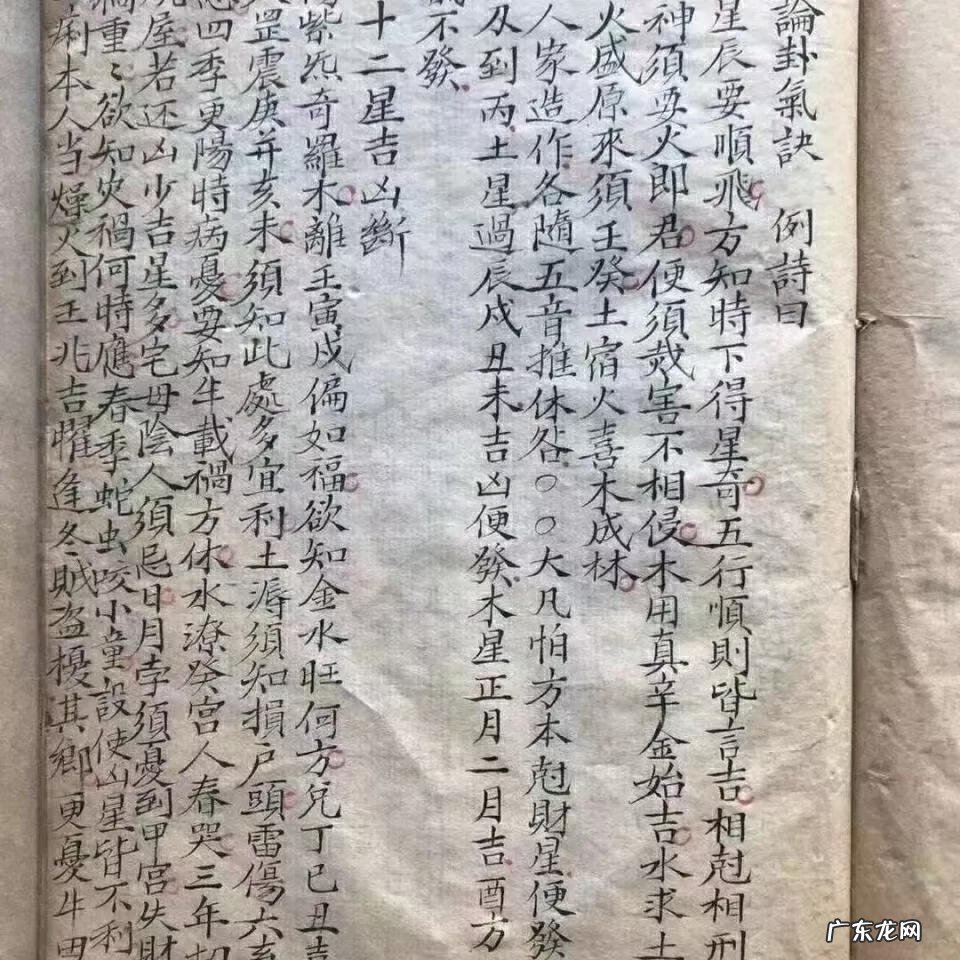 論卦氣訣 例詩曰
星辰要順飛方知時下得星奇五行順則皆言吉相尅相刑
神須要火即君便須烖害不相侵木用真辛金始吉水求土
火盛原來須壬癸土宿火喜木成林
人家造作各隨五音推休咎○○大凡怕方本尅財星便發
从到丙土星過辰戌丑未吉凶便發木星正月二月吉酉方
不發
十二星吉凶斷
紫炁奇羅木離壬寅戌偏如福欲知金水旺何方兌丁巳丑吉
罡震庚并亥未須知此處多宜利土溽須知損戶頭雷傷六畜
四季更陽時病憂要知牛載禍方休水潦癸宮人春哭三年切
屋若还凶少吉星多宅母陰人須忌日月孛須憂到甲宮失財
禍重〻欲知灾禍何時應春季蛇虫咬小童設使凶星皆不利
痢本人当燥火到壬兆吉耀逢冬賊盗擾其鄉更憂牛田
广东龙网